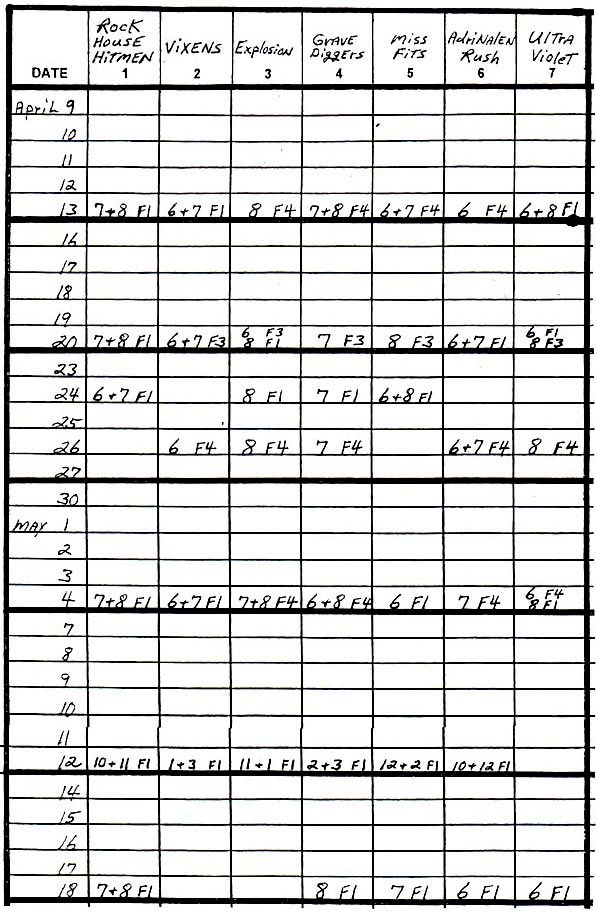 DATE
ROCK HOUSE HITMEN 1
VIXENS 2
Explosion 3
GRAVE DIGGERS 4
MISS FITS 5
AdRiNALEN Rush 6
ULTRA VioleT 7
APRIL 9
10
11
12
13 7+8 F1 6+7 F1 8 F4 7+8 F4 6+7 F4 6 F4 6+8 F1
16
17
18
19
20 7+8 F1 6+7 F3 6 F3 8 F1 7 F3 8 F3 6+7 F1 6 F1 8 F3
23
24 6+7 F1 8 F1 7 F1 6+8 F1
25
26 6 F4 8 F4 7 F4 6+7 F4 8 F4
27
30
MAY 1
2
3
4 7+8 F1 6+7 F1 7+8 F4 6+8 F4 6 F1 7 F4 6 F4 8 F1
7
8
9
10
11
12 10+11 F1 1+3 F1 11+1 F1 2+3 F1 12+2 F1 10+12 F1
14
15
16
17
18 7+8 F1 8 F1 7 F1 6 F1 6 F1